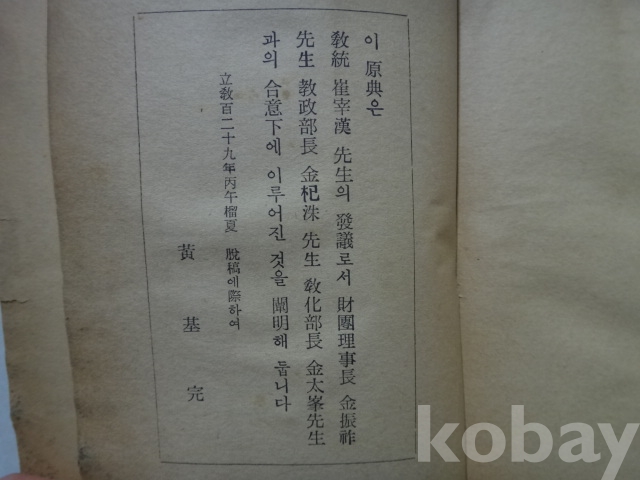 이 原典은
敎統 崔宰漢 先生의 發議로서 財團理事長 金振祚
先生 敎政部長 金杞洙 先生 敎化部長 金太峯先生
과의 合意下에 이루어진 것을 闡明해 둡니다
立敎百二十九年丙午榴夏 脫稿에際하여
黃基完
kobay